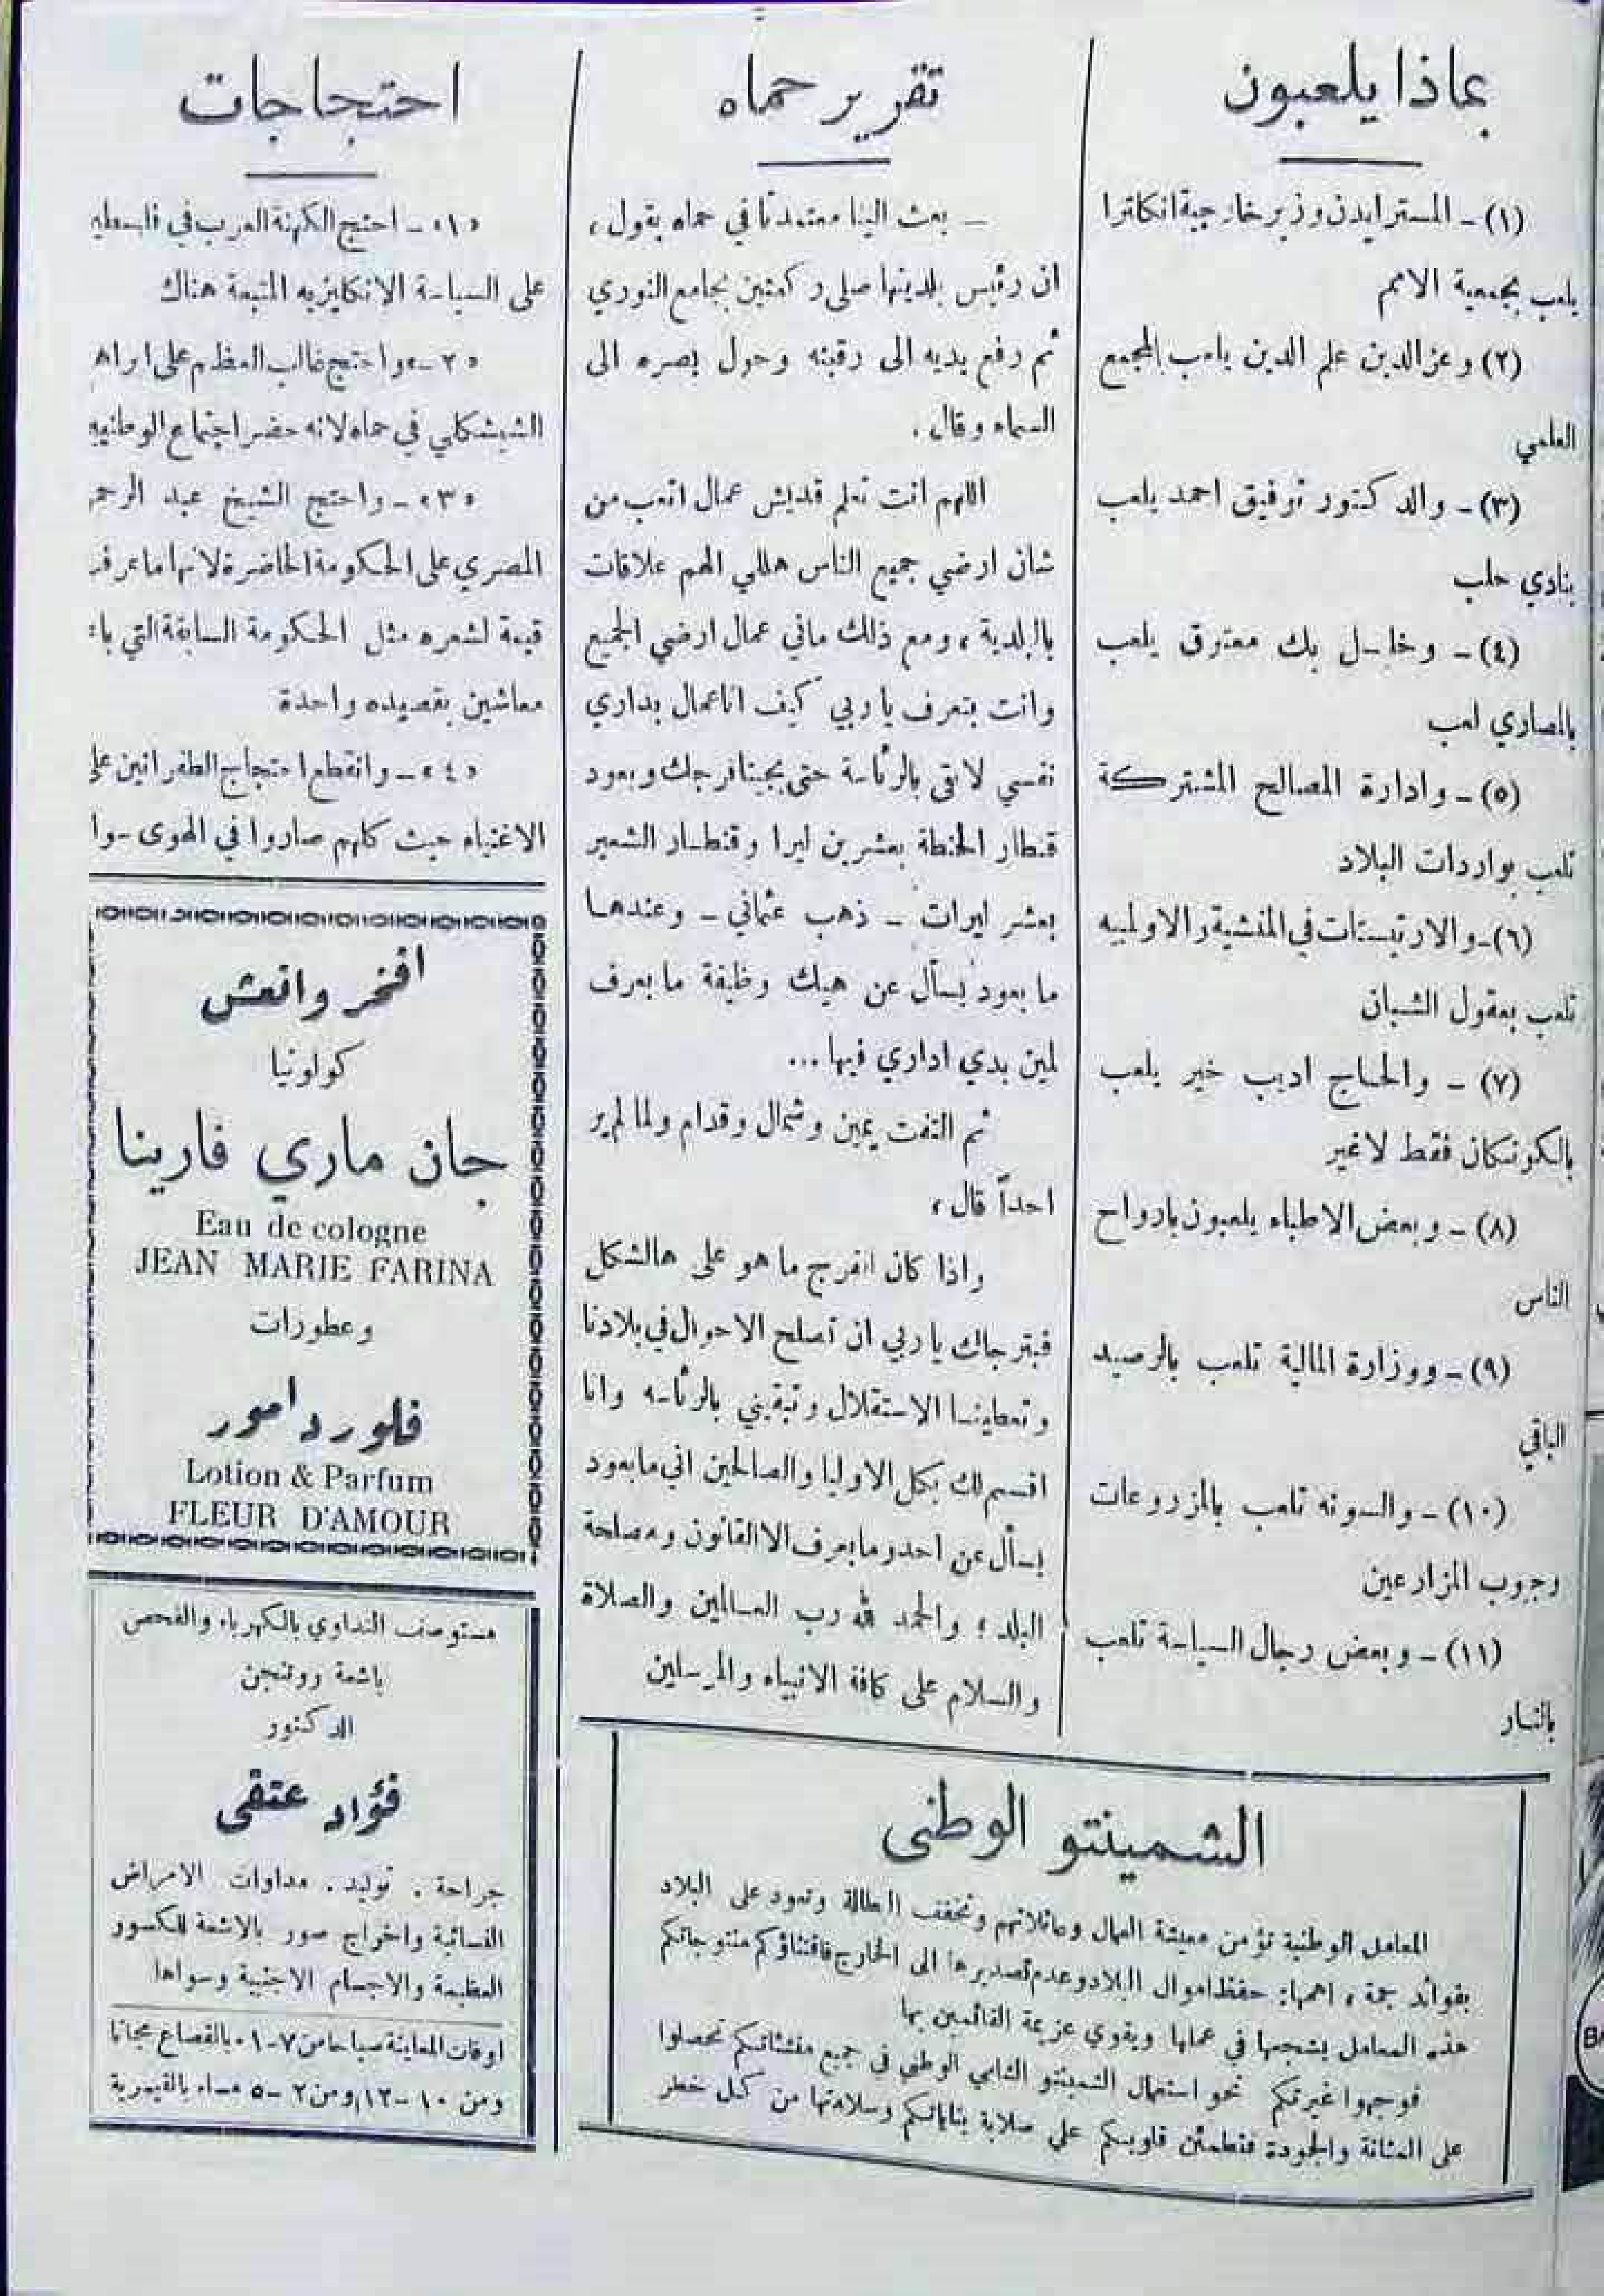 بماذا يلعبون
(١) - المستر ايدن وزير خارجية انكلترا
يلعب بجمعية الامم
(٢) وعز الدين علم الدين يلعب بالمجمع
العلمي
(٣) - والدكتور توفيق احمد يلعب
بنادي حلب
(٤) - وخليل بك معتوق يلعب
بالمصاري لعب
(٥) - وادارة المصالح المشتركة
تلعب بواردات البلاد
(٦) - والارتيستات في المنشية والاولمبيه
تلعب بعقول الشبان
(٧) - والحاج اديب خير يلعب
بالكونكان فقط لاغير
(٨) - وبعض الاطباء يلعبون بارواح
الناس
(٩) - ووزارة المالية تلعب بالرصيد
الباقي
(١٠) - والسونه تلعب بالمزروعات
وجيوب المزارعين
(١١) - وبعض رجال السياسة تلعب
بالنار
تقرير حماه
– بعث الينا معتمدنا في حماه يقول ،
ان رئيس بلديتها صلى ركعتين بجامع النوري
ثم رفع يديه الى رقبته وحول بصره الى
السماء وقال .
اللهم انت تعلم قديش عمال اتعب من
شان ارضي جميع الناس هللي الهم علاقات
بالبلدية ، ومع ذلك ماني عمال ارضي الجميع
وانت بتعرف ياربي كيف انا عمال بداري
نفسي لابقى بالرئاسة حتى يجينا فرجك وبعود
قنطار الحنطة بعشرين ليرا وقنطار الشعير
بعشر ليرات – ذهب عثماني – وعندها
ما بعود بسأل عن هيك وظيفة ما بعرف
لمين بدي اداري فيها ...
ثم التفت يمين وشمال وقدام ولما لم ير
احداً قال ،
واذا كان الفرج ما هو على هالشكل
فبترجاك ياربي ان تصلح الاحوال في بلادنا
وتعطينا الاستقلال وتبقيني بالرئاسه وانا
اقسم لك بكل الاوليا والصالحين اني ما بعود
بسأل عن احد وما بعرف الا القانون ومصلحة
البلد ؛ والحمد لله رب العالمين والصلاة
والسلام على كافة الانبياء والمرسلين
احتجاجات
«١» – احتج الكهنة العرب في فلسطين
على السياسة الانكليزيه المتبعة هناك
«٢» – واحتج غالب العظم على
الشيشكلي في حماه لانه حضر اجتماع الوطنيه
«٣» – واحتج الشيخ عبد الرحمن
المصري على الحكومة الحاضرة لانها ما عرفت
قيمة لشعره مثل الحكومة السابقة التي
معاشين بقصيده واحدة
«٤» – وانقطع احتجاج الطفرانين على
الاغنياء حيث كلهم صاروا في الهوى سوا
افخر وانعش
كولونيا
جان ماري فارينا
Eau de cologne
JEAN MARIE FARINA
وعطورات
فلور دامور
Lotion & Parfum
FLEUR D'AMOUR
مستوصف التداوي بالكهرباء والفحص
باشعة رونتجن
الدكتور
فؤاد عتقى
جراحة . توليد . مداوات الامراض
النسائية واخراج صور بالاشعة للكسور
العظيمة والاجسام الاجنبية وسواها
اوقات المعاينة صباحا من ٧-١٠ بالقصاع مجانا
ومن ١٠-١٢ ومن ٢-٥ مساء بالقيمرية
الشمينتو الوطنى
المعامل الوطنية تؤمن معيشة العمال وعائلاتهم وتخفف البطالة وتعود على البلاد
بفوائد جمة ، اهمها: حفظ اموال البلاد وعدم تصديرها الى الخارج فاقتناؤكم منتوجاتكم
هذه المعامل يشجعها في عملها ويقوي عزيمة القائمين بها
فوجهوا غيرتكم نحو استعمال الشمينتو الشامي الوطني في جميع منشئاتكم تحصلوا
على المتانة والجودة فتطمئن قلوبكم على صلابة بناياتكم وسلامتها من كل خطر